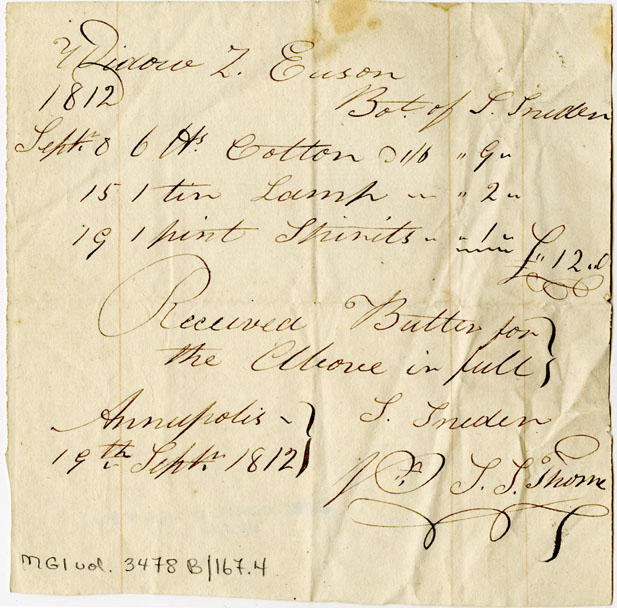 Widow Z. Euson
1812
Bot. of S. Sneden
Septr. 8 6 lbs Cotton @ 1/6 " 9 "
15 1 tin Lamp " 2 "
19 1 pint Spirits " 1 "
£ " 12 "
Received Butter for
the Above in full
Annapolis
19th Septr. 1812
S. Sneden
S. S. Thorne
MG1 vol. 3478 B/167.4